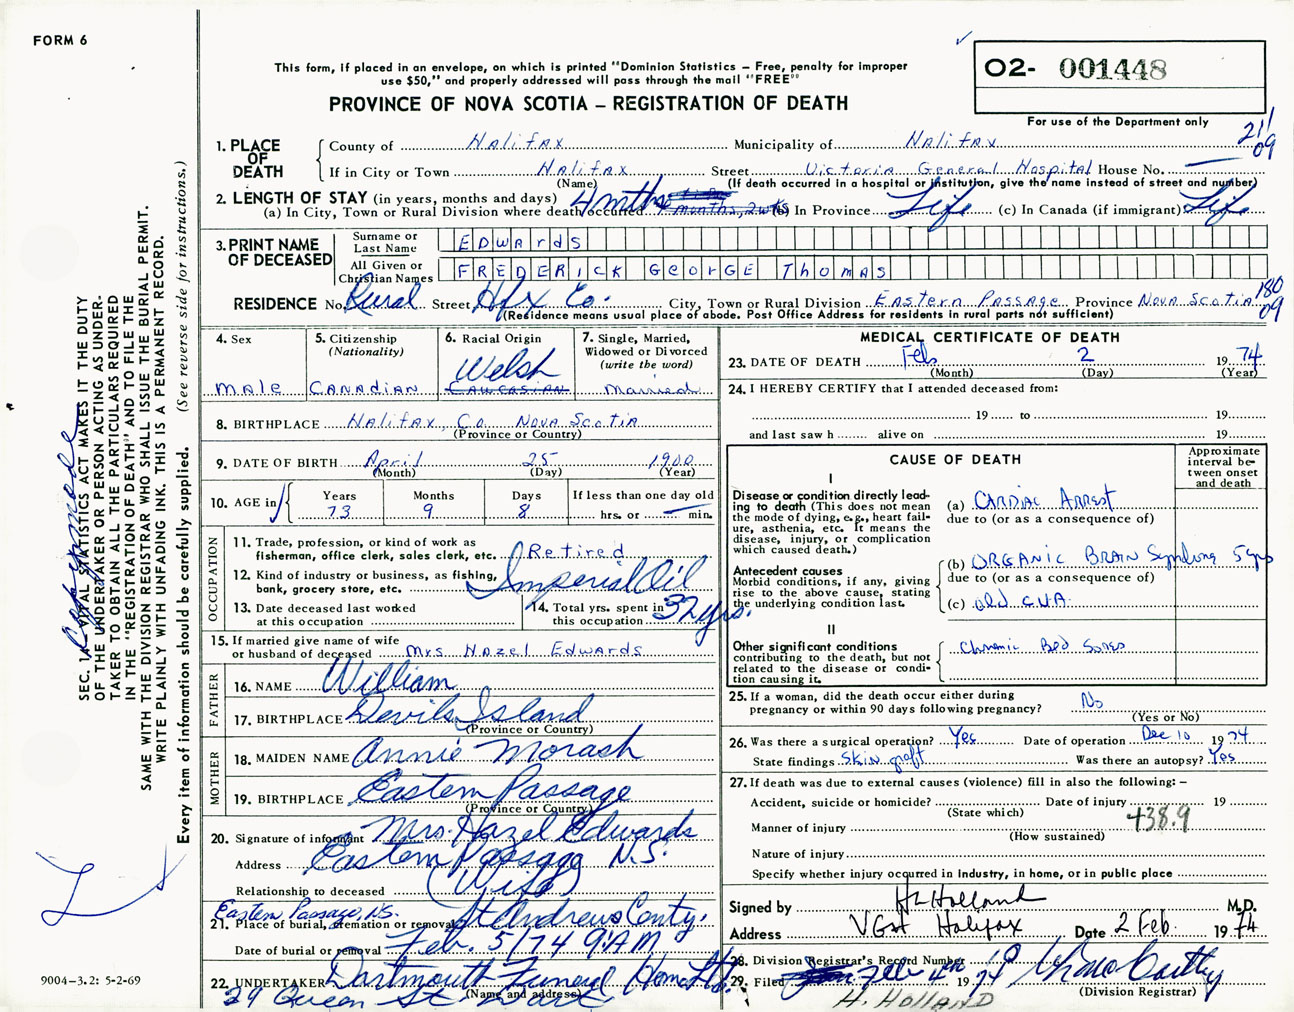 FORM 6
This form, if placed in an envelope, on which is printed "Dominion Statistics – Free, penalty for improper
use $50," and properly addressed will pass through the mail "FREE"
PROVINCE OF NOVA SCOTIA – REGISTRATION OF DEATH
02- 001448
For use of the Department only
211
09
1. PLACE OF DEATH
County of Halifax Municipality of Halifax
If in City or Town Halifax Street Victoria General Hospital House No. —
(Name) (If death occurred in a hospital or institution, give the name instead of street and number)
2. LENGTH OF STAY (in years, months and days)
(a) In City, Town or Rural Division where death occurred 4 mths (b) In Province Life (c) In Canada (if immigrant) Life
3. PRINT NAME OF DECEASED
Surname or Last Name Edwards
All Given or Christian Names FREDERICK GeorGE Thomas
RESIDENCE No. Rural Street Hfx Co. City, Town or Rural Division Eastern Passage Province Nova Scotia
180
09
(Residence means usual place of abode. Post Office Address for residents in rural parts not sufficient)
4. Sex
Male
5. Citizenship
(Nationality)
Canadian
6. Racial Origin
Welsh
Caucasian
7. Single, Married,
Widowed or Divorced
(write the word)
Married
8. BIRTHPLACE Halifax, Co. Nova Scotia
(Province or Country)
9. DATE OF BIRTH April 25 1900
(Month) (Day) (Year)
10. AGE in Years Months Days If less than one day old
73 9 8 hrs. or — min.
OCCUPATION
11. Trade, profession, or kind of work as
fisherman, office clerk, sales clerk, etc. Retired
12. Kind of industry or business, as fishing,
bank, grocery store, etc. Imperial Oil
13. Date deceased last worked
at this occupation
14. Total yrs. spent in
this occupation 32 yrs.
15. If married give name of wife
or husband of deceased Mrs Hazel Edwards
FATHER
16. NAME William
17. BIRTHPLACE Devils Island
(Province or Country)
MOTHER
18. MAIDEN NAME Annie Morash
19. BIRTHPLACE Eastern Passage
(Province or Country)
20. Signature of informant Mrs. Hazel Edwards
Address Eastern Passage N.S.
Relationship to deceased (Wife)
Eastern Passage, N.S.
21. Place of burial, cremation or removal St Andrews Cemty.
Date of burial or removal Feb. 5/74 9 A.M
22. UNDERTAKER Dartmouth Funeral Home Ltd.
(Name and address)
29 Queen St Dart
MEDICAL CERTIFICATE OF DEATH
23. DATE OF DEATH Feb 2 1974
(Month) (Day) (Year)
24. I HEREBY CERTIFY that I attended deceased from:
19 to 19
and last saw h alive on 19
CAUSE OF DEATH
Approximate interval between onset and death
I
Disease or condition directly leading to death (This does not mean the mode of dying, e.g., heart failure, asthenia, etc. It means the disease, injury, or complication which caused death.)
(a) CARDIAC ARREST
due to (or as a consequence of)
Antecedent causes
Morbid conditions, if any, giving rise to the above cause, stating the underlying condition last.
(b) ORGANIC BRAIN Syndrome 5 yrs
due to (or as a consequence of)
(c) old CVA
II
Other significant conditions
contributing to the death, but not related to the disease or condition causing it.
Chronic Bed Sores
25. If a woman, did the death occur either during
pregnancy or within 90 days following pregnancy? No
(Yes or No)
26. Was there a surgical operation? Yes Date of operation Dec 10 1974
State findings Skin graft Was there an autopsy? Yes
27. If death was due to external causes (violence) fill in also the following: –
Accident, suicide or homicide? Date of injury 19
(State which)
Manner of injury 438.9
(How sustained)
Nature of injury
Specify whether injury occurred in industry, in home, or in public place
Signed by H Holland M.D.
Address VGH Halifax Date 2 Feb. 1974
28. Division Registrar's Record Number
29. Filed Feb 4th 1974
(Division Registrar)
H. HOLLAND
SEC. 14 VITAL STATISTICS ACT MAKES IT THE DUTY
OF THE UNDERTAKER OR PERSON ACTING AS UNDER-
TAKER TO OBTAIN ALL THE PARTICULARS REQUIRED
IN THE "REGISTRATION OF DEATH" AND TO FILE THE
SAME WITH THE DIVISION REGISTRAR WHO SHALL ISSUE THE BURIAL PERMIT.
WRITE PLAINLY WITH UNFADING INK. THIS IS A PERMANENT RECORD.
Every item of information should be carefully supplied. (See reverse side for instructions.)
Copy made
9004–3.2: 5-2-69